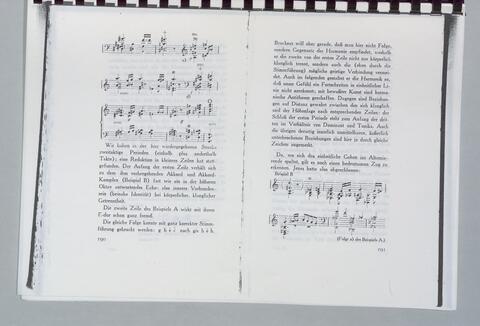 Wir haben in der hier wiedergegebenen Strecke
zweitaktige Perioden (einhalb plus anderthalb
Takte); eine Reduktion in kleinere Zeilen hat statt-
gefunden. Der Anfang der ersten Zeile verhält sich
zu dem ihm vorhergehenden Akkord und Akkord-
Komplex (Beispiel B) wie ein in der höheren
Oktav antwortendes Echo: also innere Verbunden-
sein Identität) bei körperlicher, klanglicher
Getrenntheit.
Die zweite Zeile des Beispiels A wirkt mit ihrem
F-dur schon ganz fremd.
Die gleiche Folge könnte mit ganz korrekter Stimm-
führung gebracht werden: nach
190
Bruckner will aber gerade, daß man hier nicht Folge,
sondern Gegensatz der Harmonie empfindet, weshalb
er die zwei von der ersten Zeile nicht nur körperlich
klanglich trennt, sondern auch die (eben durch die
Stimmführung) mögliche geistige Verbindung vermei-
det. Auch im folgenden gestaltet er die Harmonik so,
daß unser Gefühl ein Fortschreiten in einheitlicher Li-
nie nicht anerkennt; mit bewußter Kunst sind harmo-
nische Antithesen geschaffen. Dagegen sind Beziehun-
gen und Distanz gewahrt zwischen den sich klanglich
und der Höhenlage nach entsprechenden Zeilen: der
Schluß der ersten Periode steht zum Anfang der drit-
ten im Verhältnis von Dominant und Tonika. Auch
die übrigen derartig innerlich unmittelbaren, äußerlich
unterbrochenen Beziehungen sind hier in durch gleiche
Zeichen angemerkt.
Da, wo sich das einheitliche Gehen ins Alternie-
rende spaltet, gilt es noch einen bedeutsamen Zug zu
erkennen. Jenes hatte also abgeschlossen:
Beispiel B
(Folge a) des Beispiels A.)
191